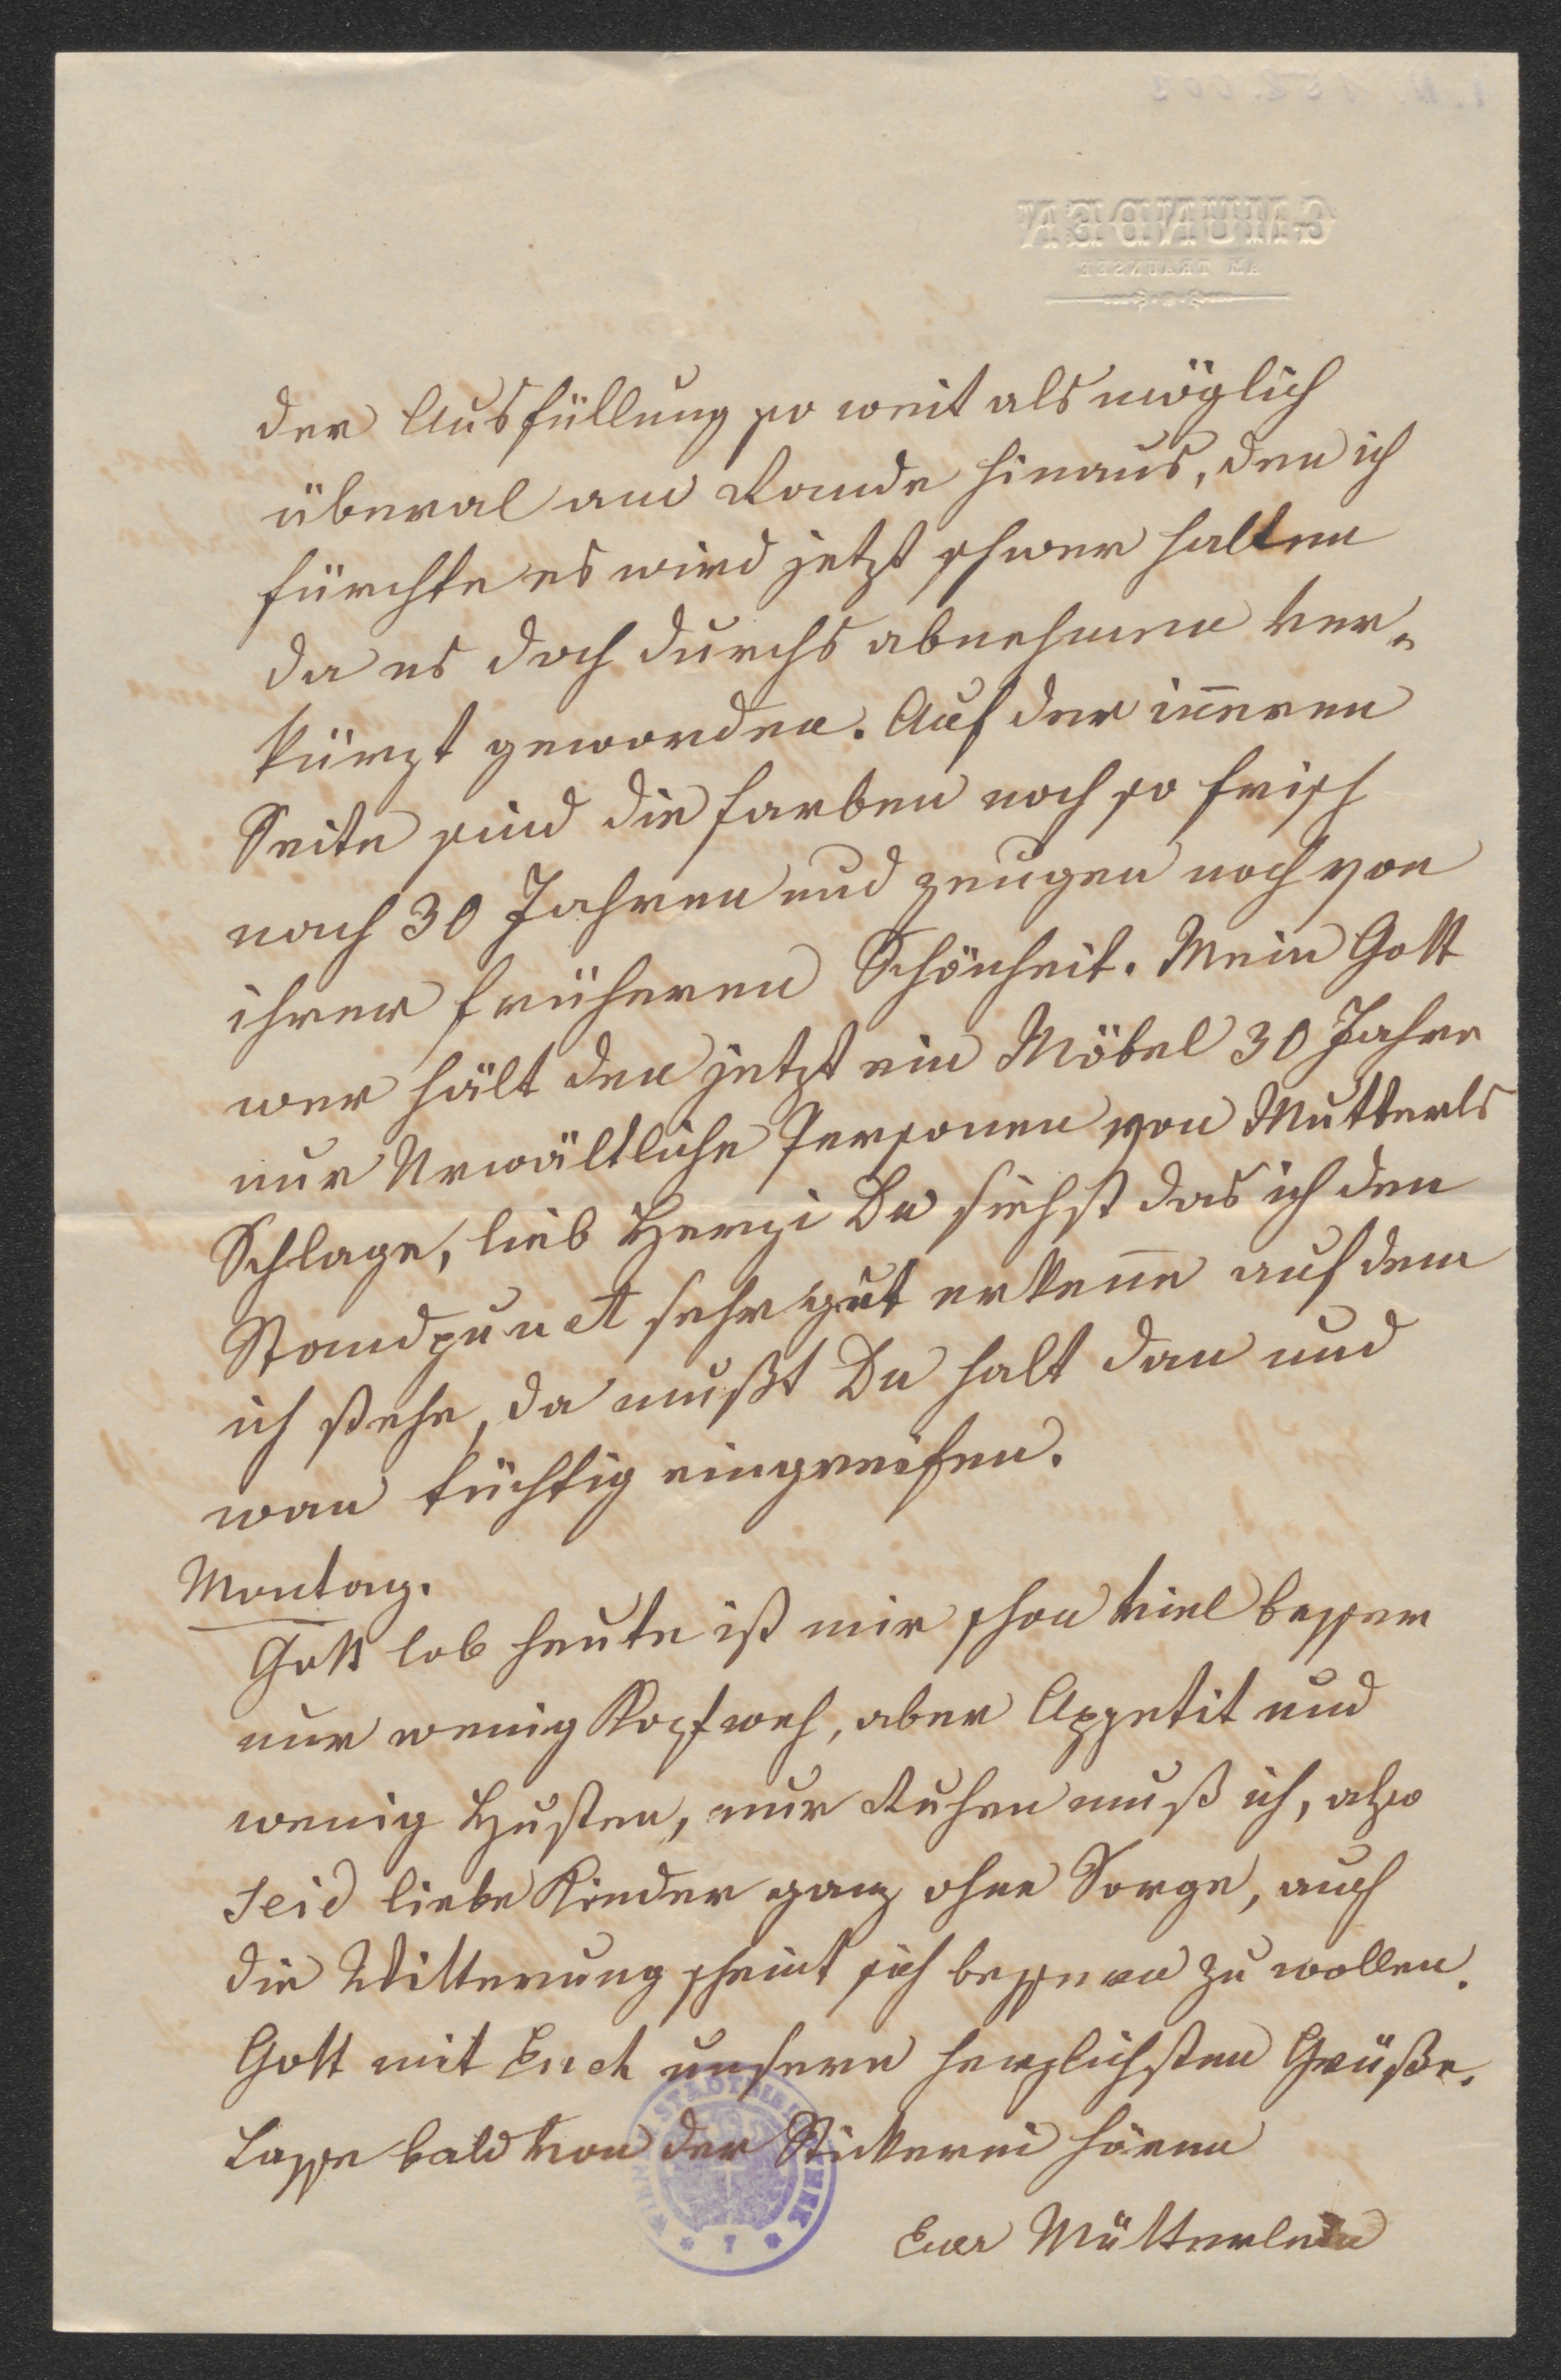 GMUNDEN
AM TRAUNSEE
der Ausfüllung so weit als möglich
überal am Rande hinaus, den ich
fürchte es wird jetzt schwer halten
da es doch durchs abnehmen ver-
kürzt geworden. Auf der iñeren
Seite sind die Farben noch so frisch
nach 30 Jahren und zeugen noch von
ihrer früheren Schönheit. Mein Gott
wer hält den jetzt ein Möbel 30 Jahre
nur Urwältliche Personen von Mutterls
Schlage, lieb Herzi Du siehst das ich den
Standpunct sehr gut erkeñe auf dem
ich stehe, da mußt Du halt dan und
wan tüchtig eingreifen.
Montag.
Gott lob heute ist mir schon viel besser
nur wenig Kopfweh, aber Appetit und
wenig Husten, nur Ruhen muß ich, also
seid liebe Kinder ganz ohne Sorge, auch
die Witterung scheint sich bessern zu wollen.
Gott mit Euch unsere herzlichsten Grüße.
Lasse bald von der Stickerei hören
Euer Mütterlein